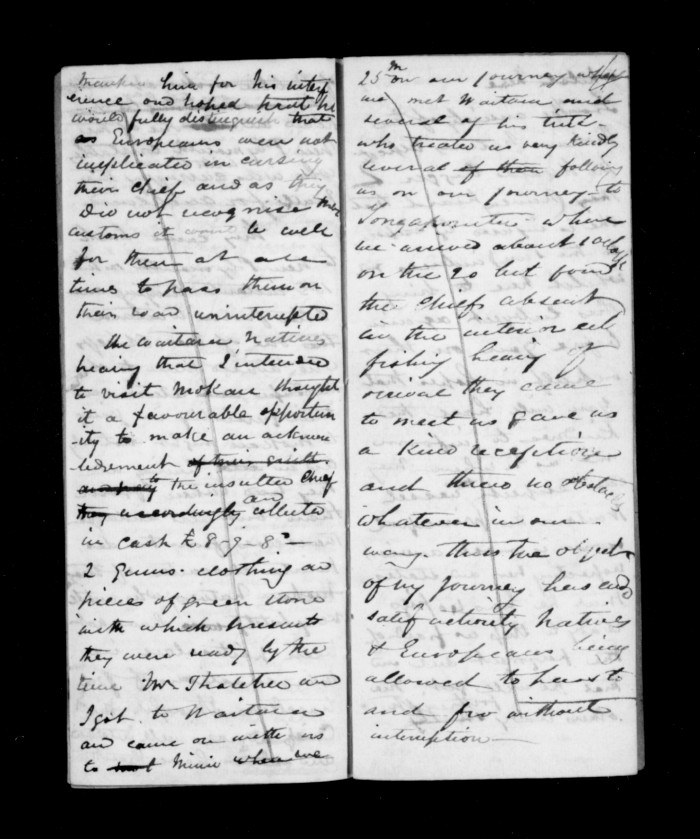 him for his interf
erence and hoped that he
would fully distinguish that
as Europeans were not
implicated in cursing
their Chief and as they
did not recognise their
customs it would be well
for them at all
times to pass them on
their road uninterrupted
the Waitara Natives
hearing that I intended
to visit Mokau thought
it a favourable opportun
ity to make an acknow
ledgement of their guilt
to the insulted Chief
they accordingly and collected
in cash £8-9-8
2 Guns. clothing and
pieces of green stone
with which presents
they were ready by the
time Mr Thatcher and
I got to Waitara
and came on with us
to Mimi where we
25 m on our journey when
we met Waitara and
several of his tribe
who treated us very kindly
several of them following
us on our journey to
where
we arrived about 10 clock
on the 20 but found
the Chiefs absent
in the interior eel
fishing hearing of
arrival they came
to meet us gave us
a kind reception
and threw no obstacles
whatever in our
way. thus the object
of my Journey has ended
satisfactorily Natives
& Europeans being
allowed to pass to
and fro without
interruption